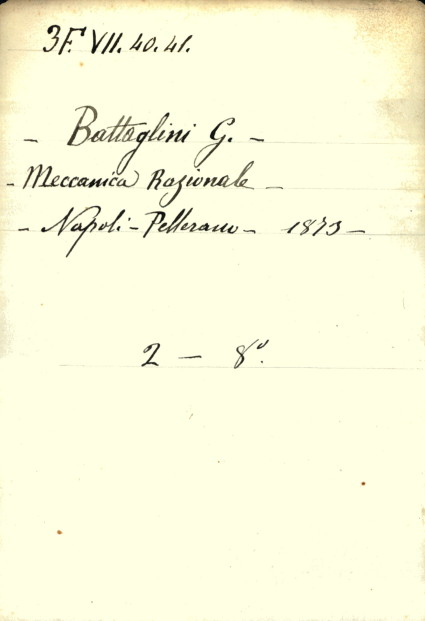 3F. VII. 40. 41.
– Battaglini G. –
– Meccanica Razionale –
– Napoli – Pellerano – 1873 –
2 – 8º.